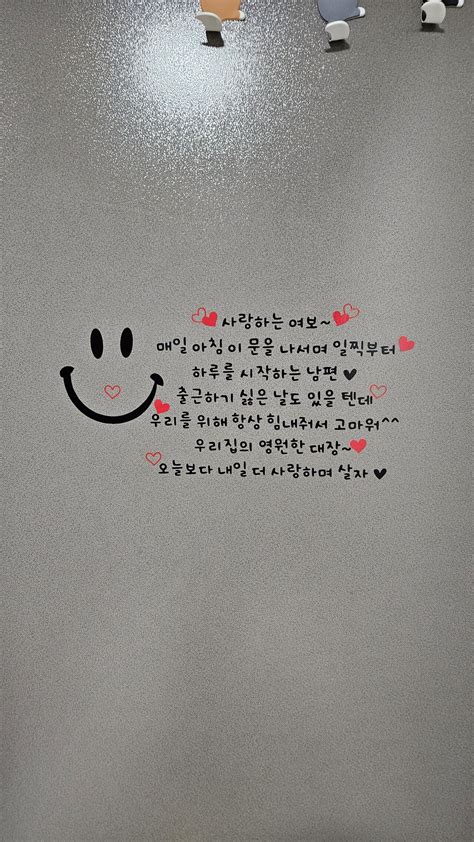 사랑하는 여보~
매일 아침 이 문을 나서며 일찍부터
하루를 시작하는 남편♥
출근하기 싫은 날도 있을 텐데
우리를 위해 항상 힘내줘서 고마워^^
우리집의 영원한 대장~
오늘보다 내일 더 사랑하며 살자♥